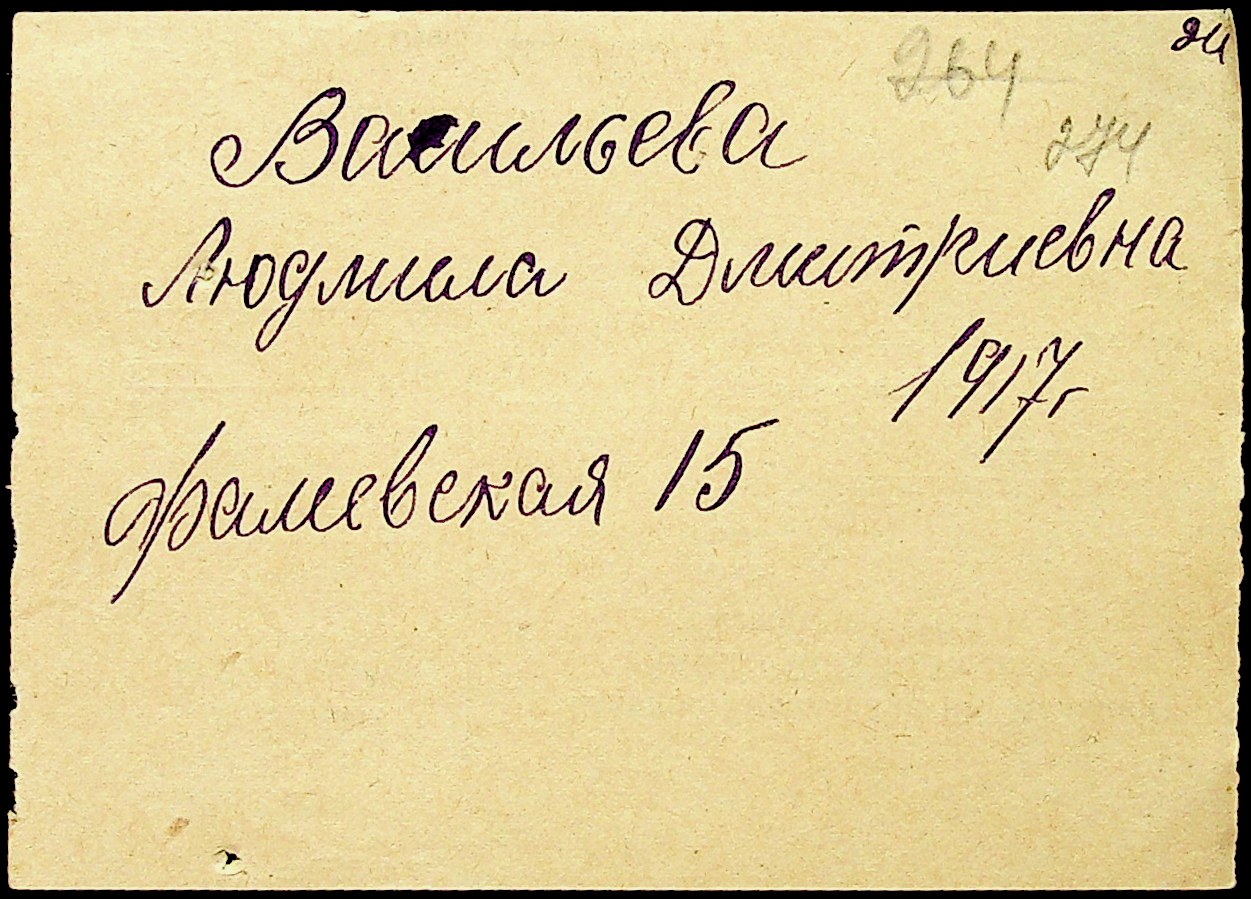 24
264
274
Васильева
Людмила Дмитриевна
1917г
Фалеевская 15